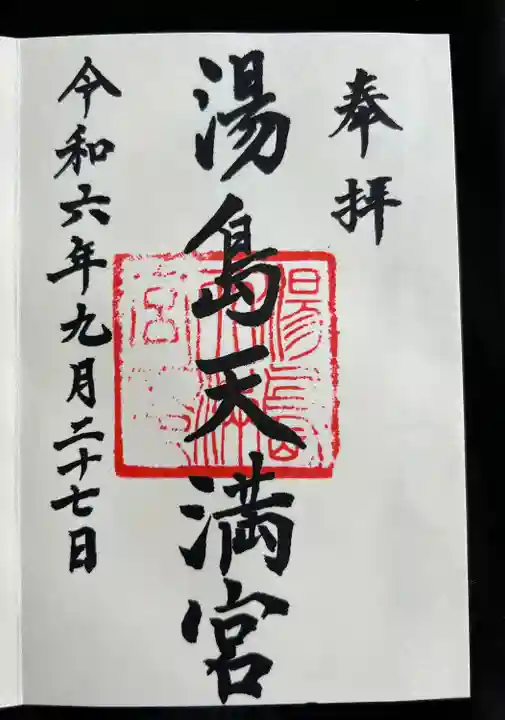 奉拝
湯島天満宮
令和六年九月二十七日